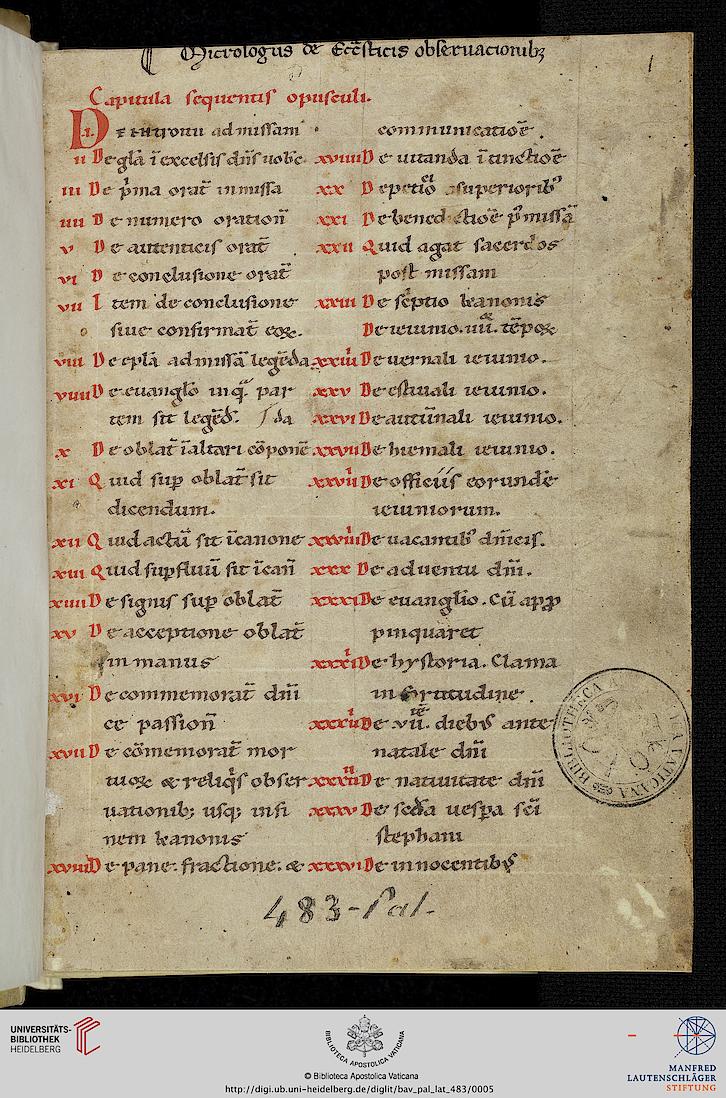 ¶ Micrologus de Eccl̄sticis obseruacionibꝫ
1
Capitula sequentis opusculi.
.i. De introitu ad missam
ii De gl̄a ī excelsis dn̄s uobc̄
iii De p̄ma orat̄ in missa
iiii De numero oration̄
v De autenticis orat̄
vi De conclusione orat̄
vii Item de conclusione
siue confirmat̄ eoꝝ.
viii De epl̄a ad missā legēda
viiii De euangl̄o in q̄ par
tem sit legēd̄. da
x De oblat̄ ī altari cōponē
xi Quid sup̄ oblat̄ sit
dicendum.
xii Quid actū sit ī canone
xiii Quid sup̄fluū sit ī cañ
xiiii De signis sup̄ oblat̄
xv De acceptione oblat̄
in manus
xvi De commemorat̄ dn̄i
ce passion̄
xvii De cōmemorat̄ mor
tuoꝝ & reliq̄s obser
uationibꝫ usqꝫ in fi
nem kanonis
xviii De pane. fractione. &
communicatiōe.
xviiii De uitanda ītinctiōe
xx De peti superioribꝰ
xxi De benedictiōe p̄ missā
xxii Quid agat sacerdos
post missam
xxiii De sc̄ptio kanonis
De ieiunio .iiii. tēpoꝝ
xxiiii De uernali ieiunio.
xxv De estiuali ieiunio.
xxvi De autūnali ieiunio.
xxvii De hiemali ieiunio.
xxviii De officiis eorundē
ieiuniorum.
xxviiii De uacantibꝰ dn̄icis.
xxx De aduentu dn̄i.
xxxi De euanglio. Cū app̄
pinquaret
xxxii De hystoria. Clama
in fortitudine.
xxxiii De vii. diebꝰ ante
natale dn̄i
xxxiiii De natiuitate dn̄i
xxxv De sc̄da uesp̄a sc̄i
stephani
xxxvi De innocentibꝰ
483-Pal.
BIBLIOTHECA VATICANA
UNIVERSITÄTS-
BIBLIOTHEK
HEIDELBERG
BIBLIOTECA APOSTOLICA VATICANA
© Biblioteca Apostolica Vaticana
http://digi.ub.uni-heidelberg.de/diglit/bav_pal_lat_483/0005
MANFRED
LAUTENSCHLÄGER
STIFTUNG